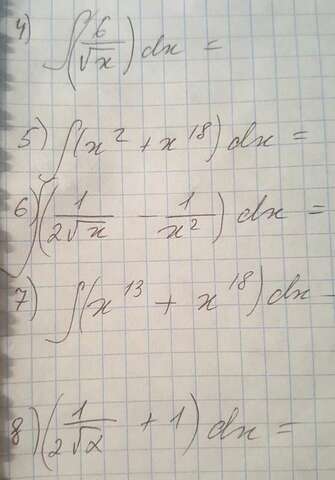 4) ∫(6/√x) dx =
5) ∫(x² + x¹⁸) dx =
6) ∫(1/2√x − 1/x²) dx =
7) ∫(x¹³ + x¹⁸) dx −
8) ∫(1/2√2 + 1) dx =